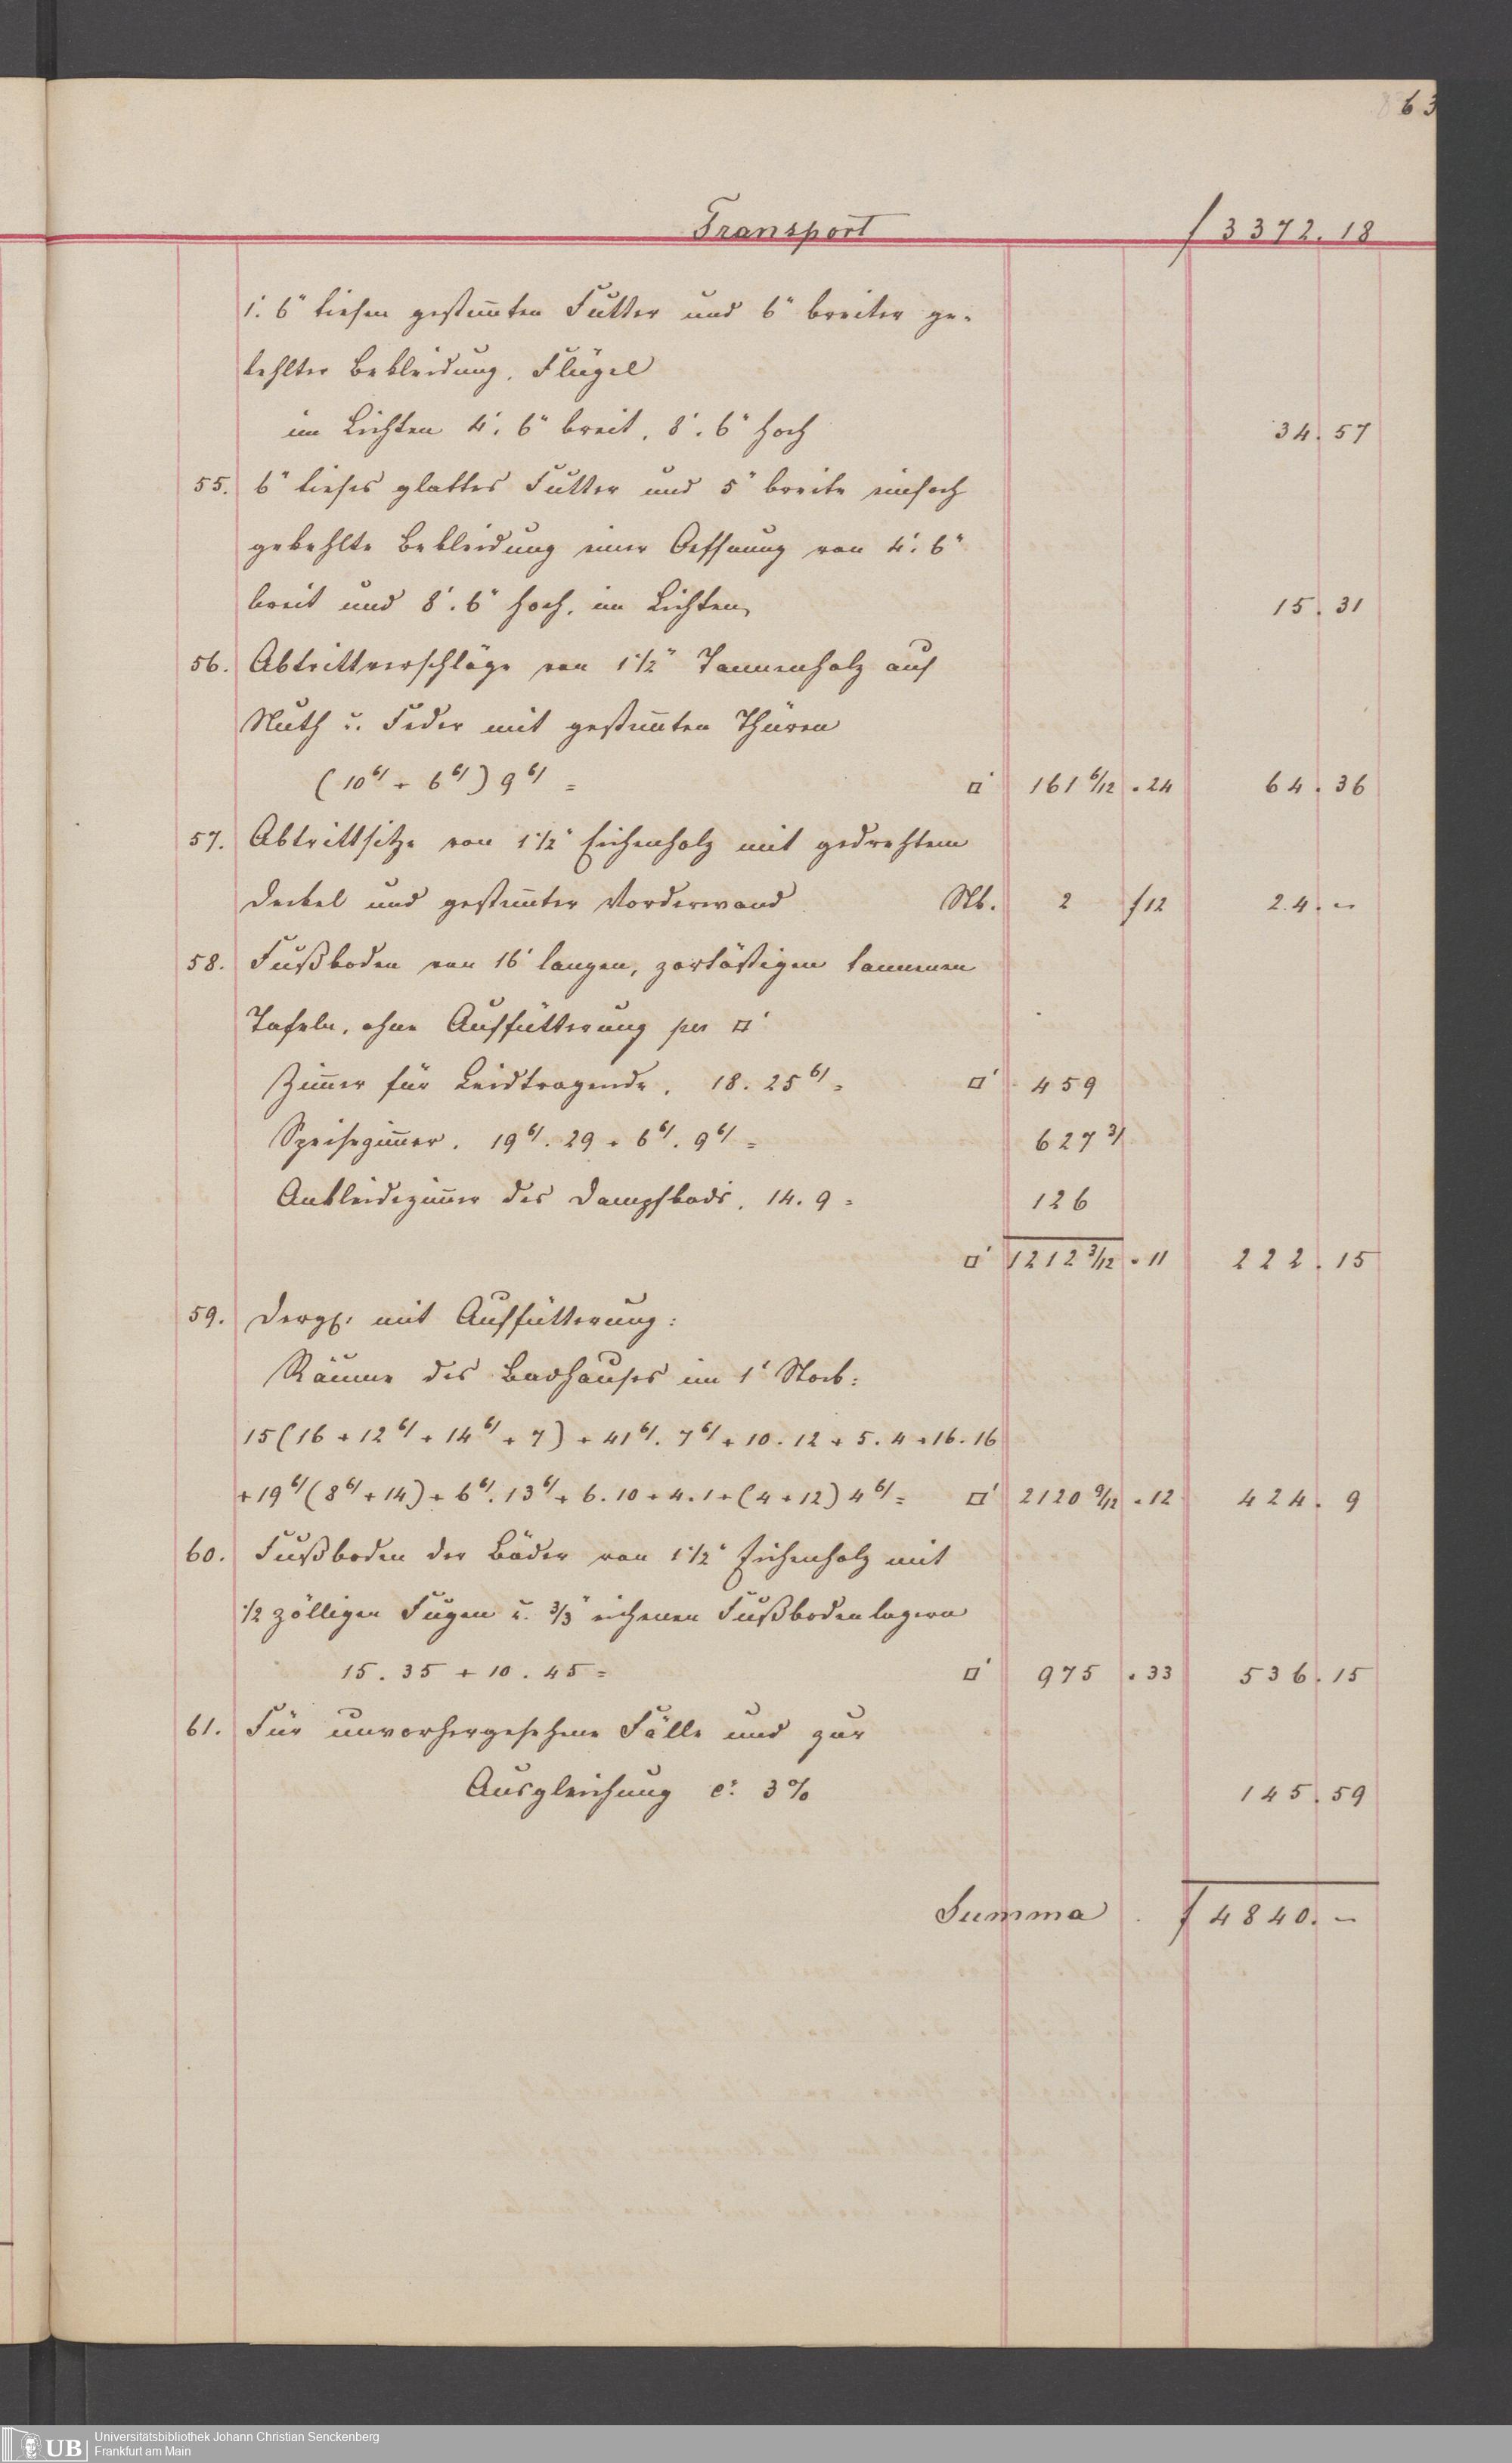 63
Transport f 3372. 18
1'. 6" tiefen gestem̅ten Futter und 6" breiter ge-
kehlter Bekleidung, Flügel
im Lichten 4'. 6" breit, 8'. 6" hoch 34. 57
55. 6" tiefes glattes Futter und 5" breite einfach
gekehlte Bekleidung einer Oeffnung von 4'. 6"
breit und 8'. 6" hoch, im Lichten, 15. 31
56. Abtrittverschläge von 1 1/2" Tannenholz auf
Nuth u. Feder mit gestem̅ten Thüren
(10 6/ + 6 6/) 9 6/ = □' 161 6/12 . 24 64. 36
57. Abtrittsitze von 1 1/2" Eichenholz mit gedrehtem
Deckel und gestem̅ter Vorderwand Stk. 2 f 12 24. –
58. Fußboden von 16' langen, zartästigen tannenen
Tafeln, ohne Auffütterung per □'
Zim̅er für Leidtragende, 18. 25 6/ = □' 459
Speisezim̅er, 19 6/. 29 + 6 6/. 9 6/ = 627 3/
Ankleidezim̅er des Dampfbads, 14. 9 = 126
□' 1212 3/12 . 11 222. 15
59. Dergl. mit Auffütterung:
Räume des Badhauses im 1' Stock:
15 (16 + 12 6/ + 14 6/ + 7) + 41 6/. 7 6/ + 10. 12 + 5. 4 + 16. 16
+ 19 6/ (8 6/ + 14) + 6 6/. 13 6/ + 6. 10 + 4. 1 + (4 + 12) 4 6/ = □' 2120 9/12 . 12 424. 9
60. Fußboden der Bäder von 1 1/2" Eichenholz mit
1/2 zölligen Fugen u. 3/3" eichenen Fußbodenlagern
15. 35 + 10. 45 = □' 975 . 33 536. 15
61. Für unvorhergesehene Fälle und zur
Ausgleichung ca: 3% 145. 59
Summa f 4840. –
UB Universitätsbibliothek Johann Christian Senckenberg
Frankfurt am Main